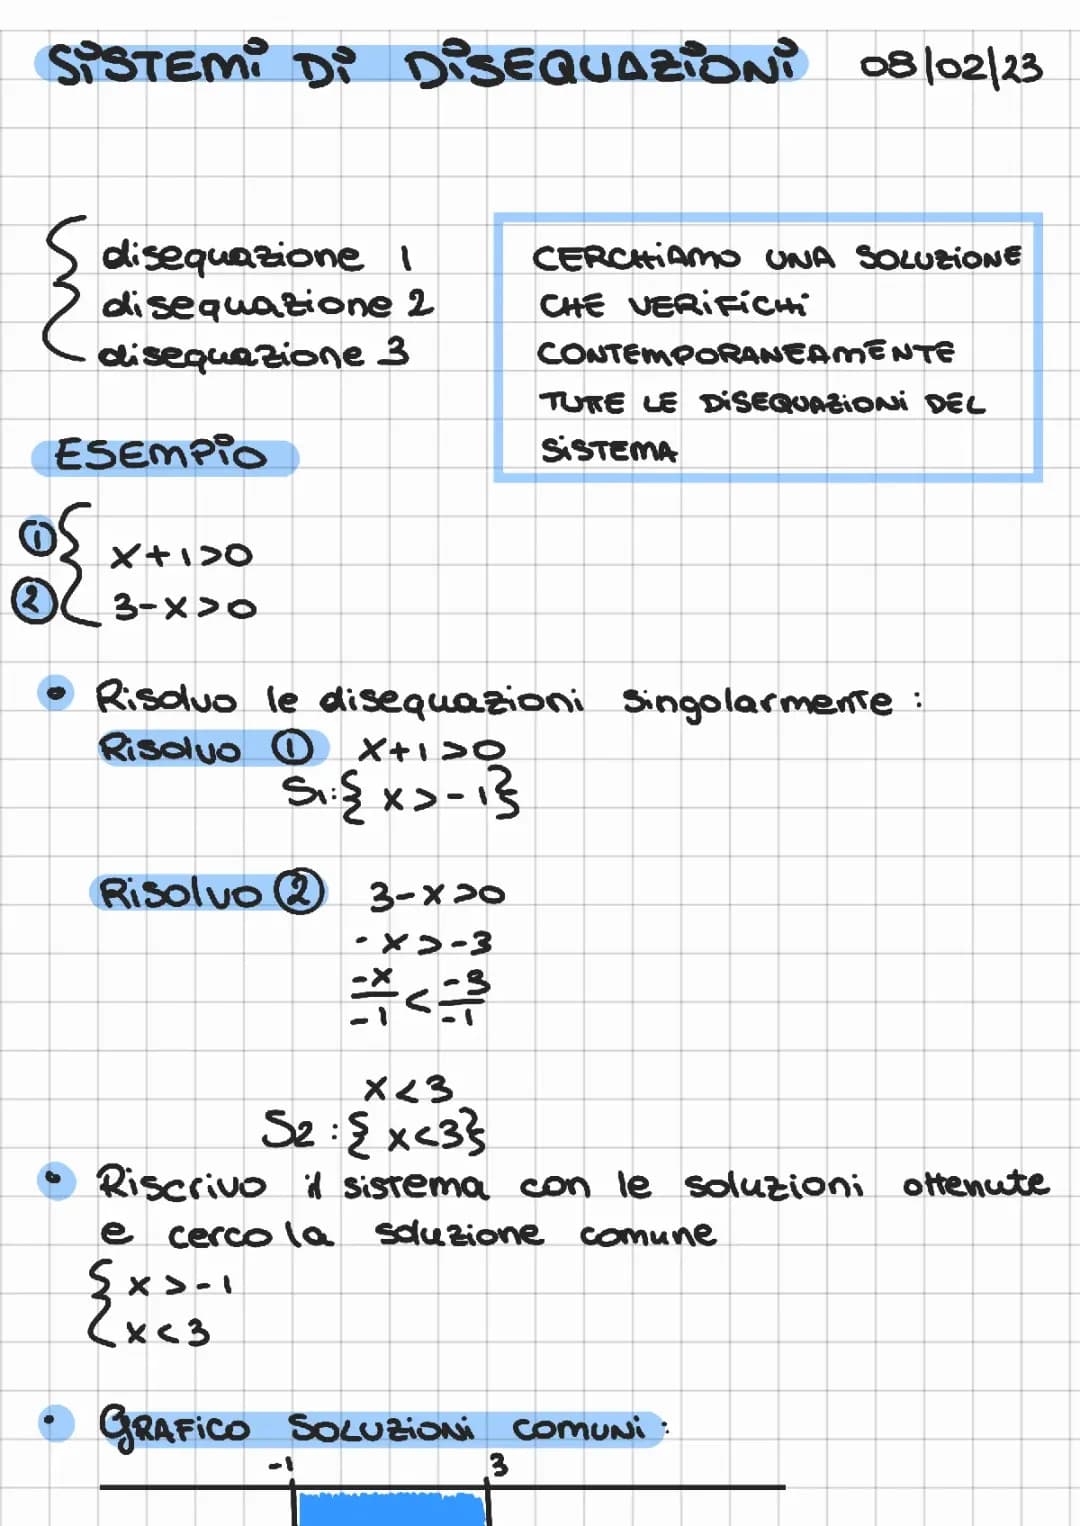 SISTEMI DI DISEQUAZIONI 08/02/23
disequazione 1
disequazione 2
disequazione 3
CERCHIAMO UNA SOLUZIONE
CHE VERIFICHI
CONTEMPORANEAMENTE
TUTTE LE DISEQUAZIONI DEL
SISTEMA
ESEMPIO
① { x+1>0
② { 3-x>0
• Risolvo le disequazioni singolarmente:
Risolvo ① x+1>0
S1:{x>-1}
Risolvo ② 3-x>0
-x>-3
-x/-1 < -3/-1
x<3
S2:{x<3}
• Riscrivo il sistema con le soluzioni ottenute
e cerco la soluzione comune
{ x>-1
{ x<3
• GRAFICO SOLUZIONI COMUNI:
-1 3